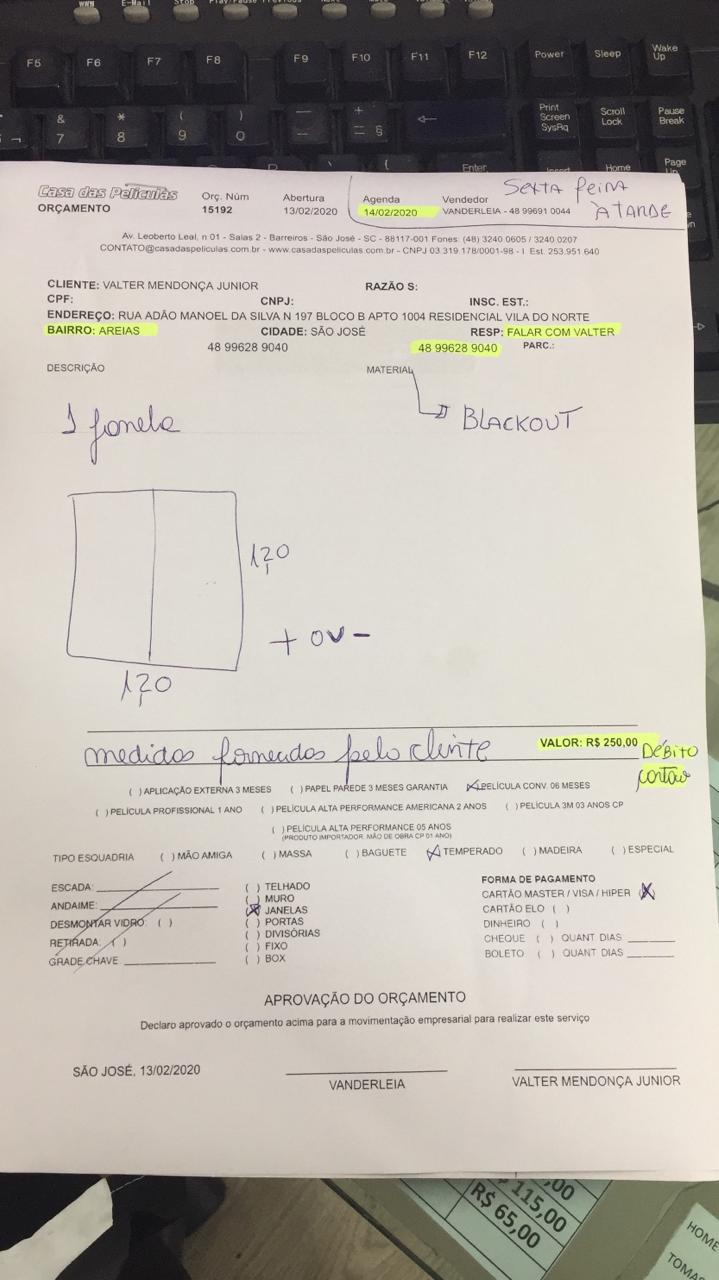 WWW E-Mail Stop
F5 F6 F7 F8 F9 F10 F11 F12 Power Sleep Wake Up
& 7 * 8 ( 9 ) 0 — + = § Print Screen SysRq Scroll Lock Pause Break
Enter Home Page
Casa das Películas
ORÇAMENTO
Orç. Núm
15192
Abertura
13/02/2020
Agenda
14/02/2020
Vendedor
VANDERLEIA - 48 99691 0044
SEXTA feira
À TARDE
Av. Leoberto Leal, n 01 - Salas 2 - Barreiros - São José - SC - 88117-001 Fones: (48) 3240 0605 / 3240 0207
CONTATO@casadaspeliculas.com.br - www.casadaspeliculas.com.br - CNPJ 03.319.178/0001-98 - I Est. 253.951.640
CLIENTE: VALTER MENDONÇA JUNIOR RAZÃO S:
CPF: CNPJ: INSC. EST.:
ENDEREÇO: RUA ADÃO MANOEL DA SILVA N 197 BLOCO B APTO 1004 RESIDENCIAL VILA DO NORTE
BAIRRO: AREIAS CIDADE: SÃO JOSÉ RESP: FALAR COM VALTER
48 99628 9040 48 99628 9040 PARC.:
DESCRIÇÃO MATERIAL
1 janela BLACKOUT
1,20
+ ou -
1,20
medidas fornecidas pelo cliente VALOR: R$ 250,00 DÉBITO
cartão
( ) APLICAÇÃO EXTERNA 3 MESES ( ) PAPEL PAREDE 3 MESES GARANTIA (X) PELÍCULA CONV. 06 MESES
( ) PELÍCULA PROFISSIONAL 1 ANO ( ) PELÍCULA ALTA PERFORMANCE AMERICANA 2 ANOS ( ) PELÍCULA 3M 03 ANOS CP
( ) PELÍCULA ALTA PERFORMANCE 05 ANOS
(PRODUTO IMPORTADOR, MÃO DE OBRA CP 01 ANO)
TIPO ESQUADRIA ( ) MÃO AMIGA ( ) MASSA ( ) BAGUETE (X) TEMPERADO ( ) MADEIRA ( ) ESPECIAL
ESCADA:
ANDAIME:
DESMONTAR VIDRO: ( )
RETIRADA: ( )
GRADE CHAVE
( ) TELHADO
( ) MURO
(X) JANELAS
( ) PORTAS
( ) DIVISÓRIAS
( ) FIXO
( ) BOX
FORMA DE PAGAMENTO
CARTÃO MASTER / VISA / HIPER (X)
CARTÃO ELO ( )
DINHEIRO ( )
CHEQUE ( ) QUANT DIAS
BOLETO ( ) QUANT DIAS
APROVAÇÃO DO ORÇAMENTO
Declaro aprovado o orçamento acima para a movimentação empresarial para realizar este serviço
SÃO JOSÉ, 13/02/2020
VANDERLEIA
VALTER MENDONÇA JUNIOR
,00
115,00
R$ 65,00
HOME
TOMA